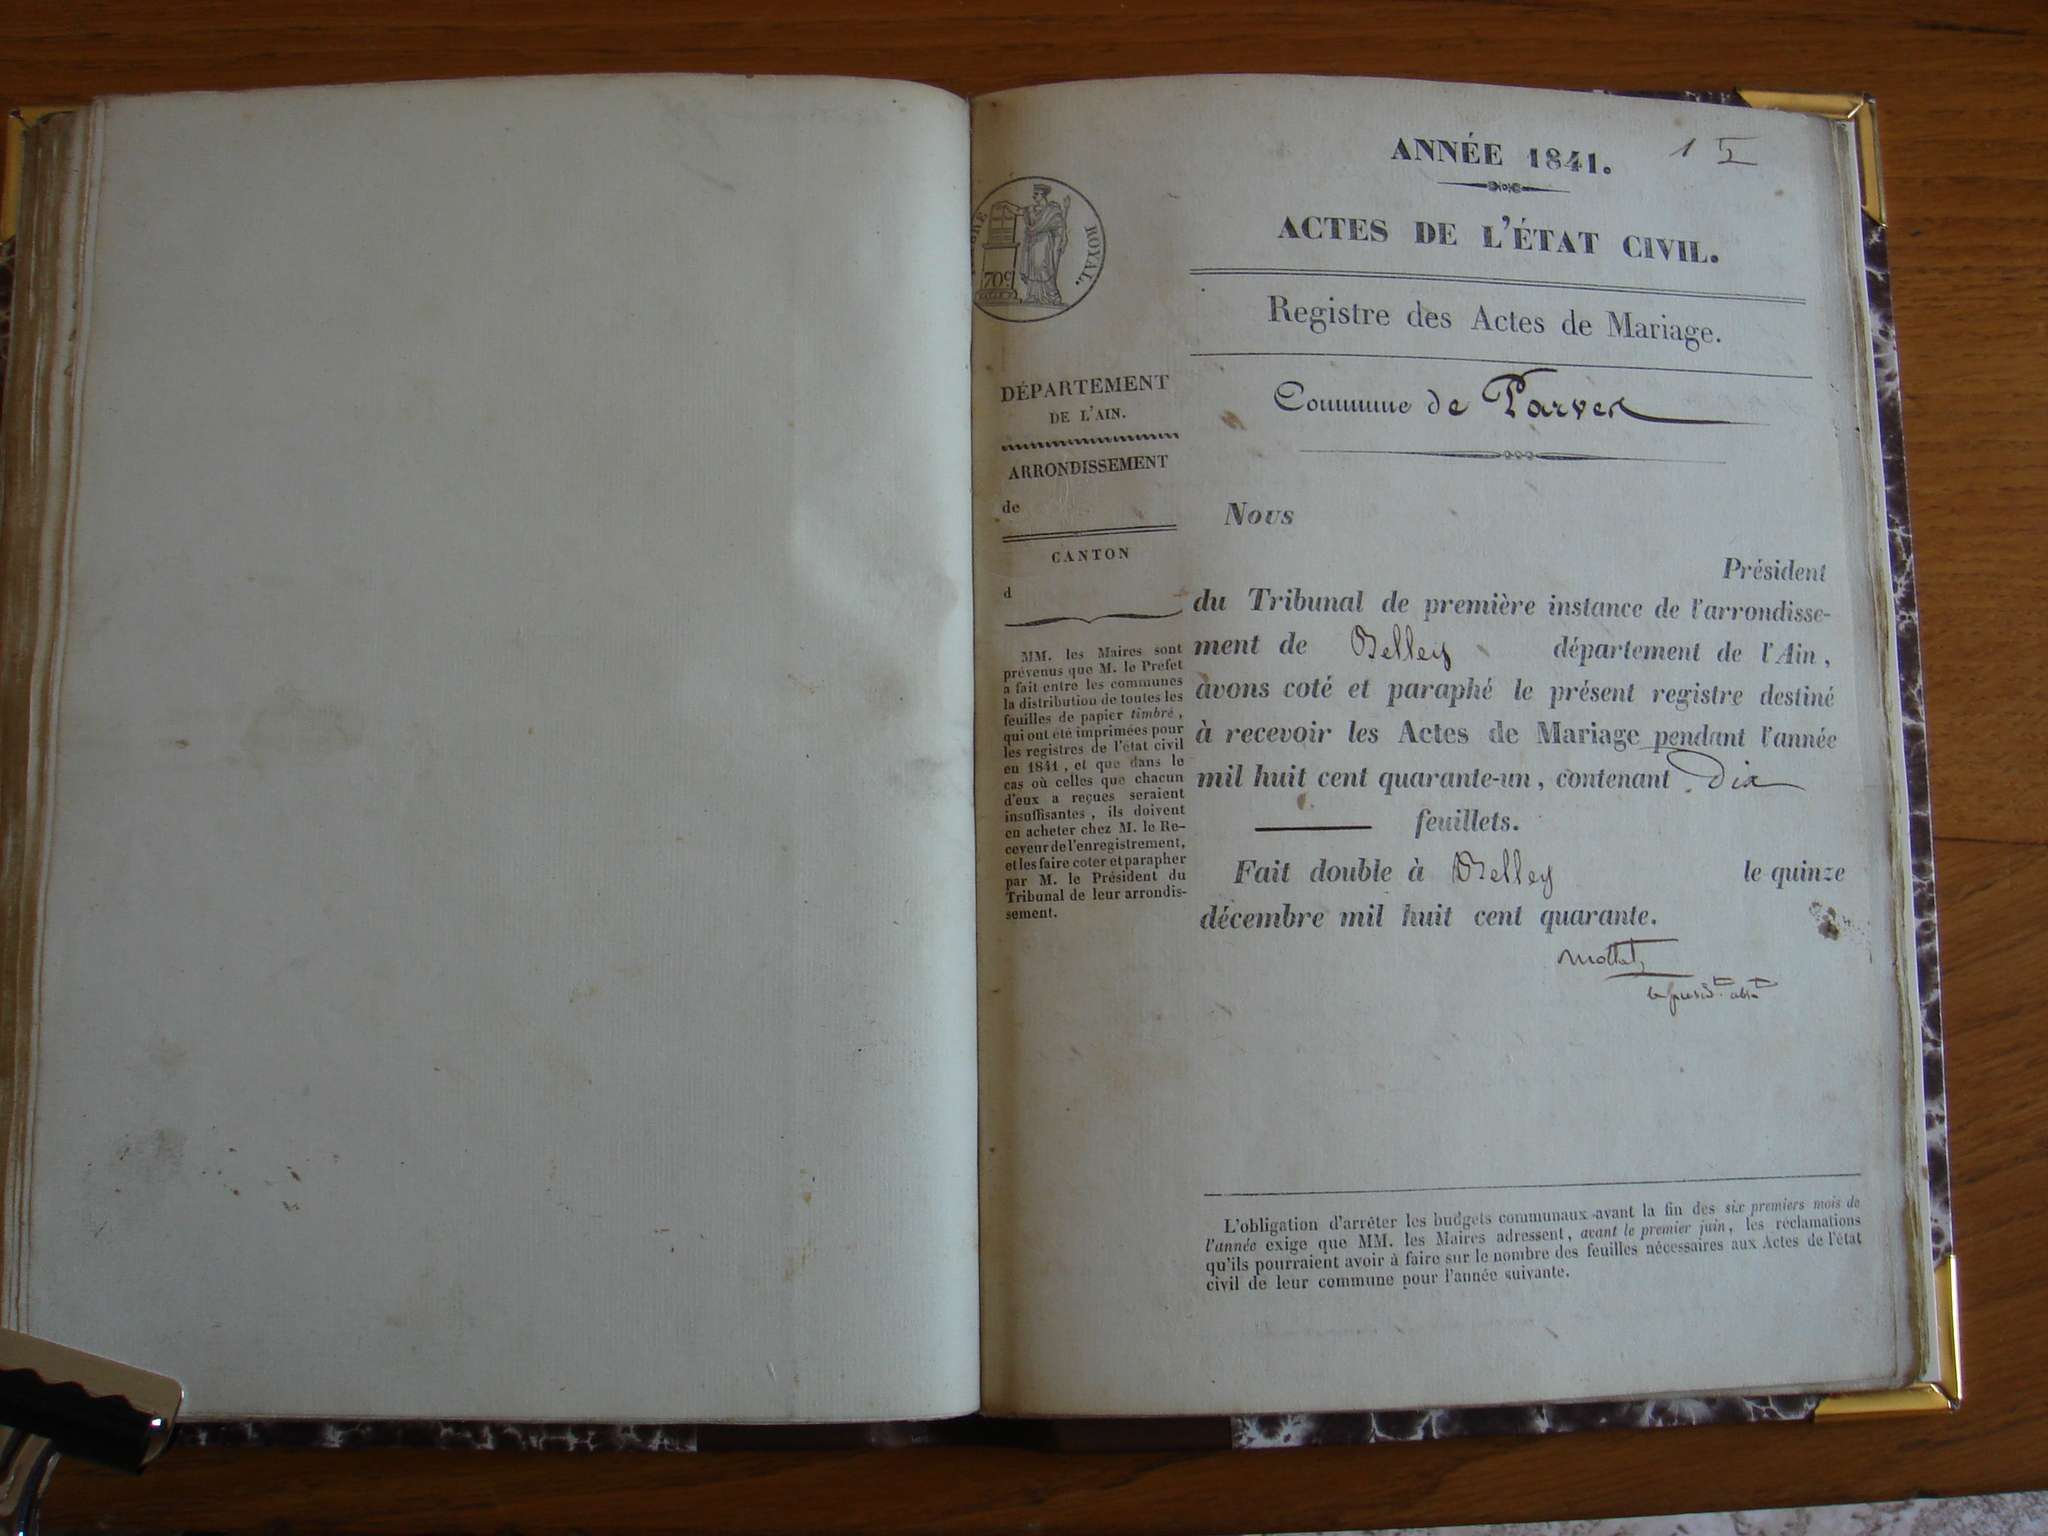 ANNÉE 1841.
1
ACTES DE L'ÉTAT CIVIL.
Registre des Actes de Mariage.
Commune de Parves
BRE ROYAL.
70c
DÉPARTEMENT
DE L'AIN.
ARRONDISSEMENT
de
CANTON
d
MM. les Maires sont
prévenus que M. le Prefet
a fait entre les communes
la distribution de toutes les
feuilles de papier timbré,
qui ont été imprimées pour
les registres de l'état civil
en 1841, et que dans le
cas où celles que chacun
d'eux a reçues seraient
insuffisantes, ils doivent
en acheter chez M. le Re-
ceveur de l'enregistrement,
et les faire coter et parapher
par M. le Président du
Tribunal de leur arrondis-
sement.
Nous
Président
du Tribunal de première instance de l'arrondisse-
ment de Belley département de l'Ain,
avons coté et paraphé le présent registre destiné
à recevoir les Actes de Mariage pendant l'année
mil huit cent quarante-un, contenant Dix
feuillets.
Fait double à Belley le quinze
décembre mil huit cent quarante.
L'obligation d'arrêter les budgets communaux avant la fin des six premiers mois de
l'année exige que MM. les Maires adressent, avant le premier juin, les réclamations
qu'ils pourraient avoir à faire sur le nombre des feuilles nécessaires aux Actes de l'état
civil de leur commune pour l'année suivante.